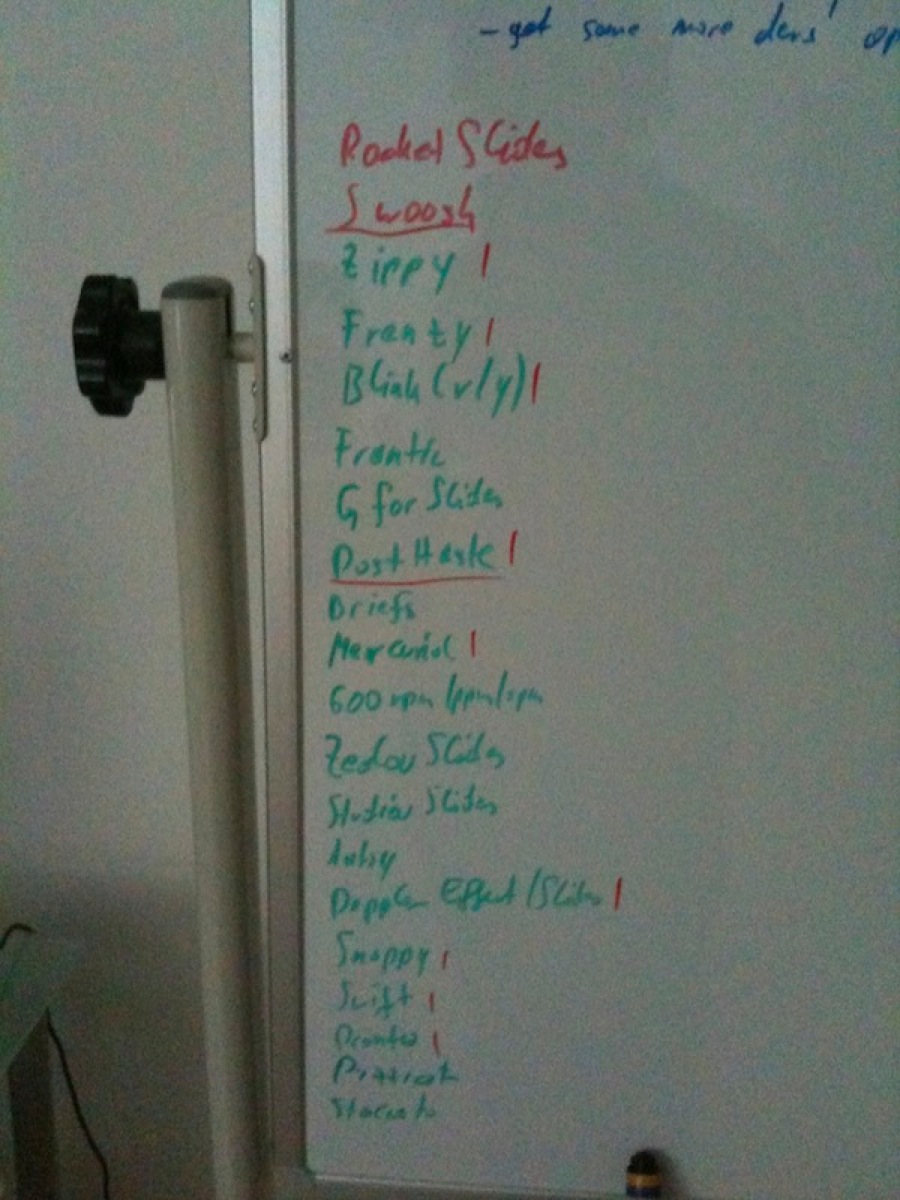 - get some more devs' op
Rocket Slides
Swoosh
Zippy |
Frenzy |
Blink (r/y) |
Frantic
G for Slides
Post Haste |
Briefs
Mercurial |
600 rpm /ppm/spm
Slides
Slides
Doppler Effect/Slides |
Snappy |
Swift |
Pronto |
Pizzicato
Staccato